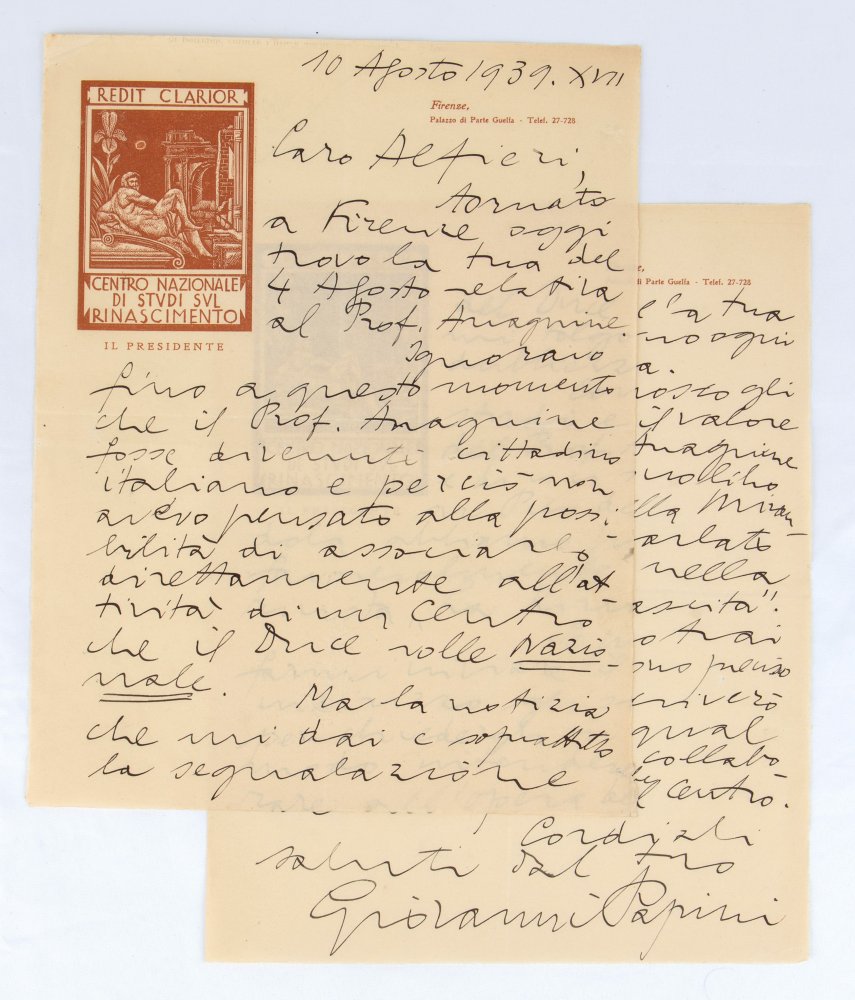 10 Agosto 1939. XVII
REDIT CLARIOR
CENTRO NAZIONALE
DI STVDI SVL
RINASCIMENTO
IL PRESIDENTE
Firenze,
Palazzo di Parte Guelfa - Telef. 27-728
Caro Alfieri,
tornato
a Firenze oggi
trovo la tua del
4 Agosto relativa
al Prof. Anagnine.
Ignoravo
fino a questo momento
che il Prof. Anagnine
fosse divenuto cittadino
italiano e perciò non
avevo pensato alla possi-
bilità di associarlo
direttamente all'at
tività di un Centro
che il Duce volle Nazio-
nale.
Ma la notizia
che mi dai e soprattutto
la segnalazione
i Parte Guelfa - Telef. 27-728
l'a tua
ogni
a.
nosco gli
il valore
Anagnine
suo libro
lla Miran-
arlato
nella
ascita".
otrai
preciso
criverò
qual
collabo
l Centro.
Cordiali
saluti dal tuo
Giovanni Papini